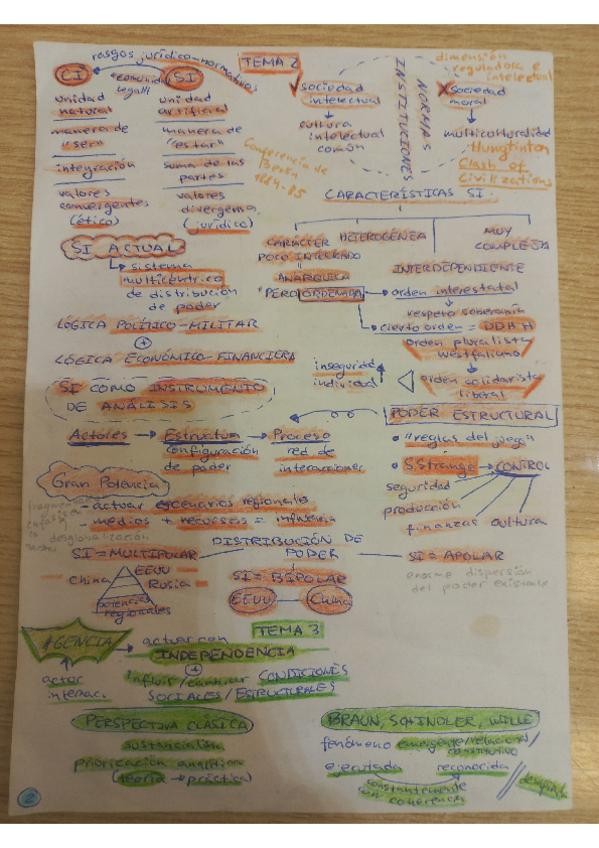 rasgos jurídico-normativos
TEMA 2
CI
SI
"comunidad legal"
unidad natural
unidad artificial
manera de "ser"
manera de "estar"
integración
suma de las partes
valores convergentes (ético)
valores divergen (jurídico)
Conferencia de Berlín 1884-85
sociedad intelectual
cultura intelectual común
NORMAS
INSTITUCIONES
dimensión reguladora e intelectual
sociedad moral
multiculturalidad
Hungtinton
Clash of Civilizations
CARACTERÍSTICAS SI.
CARÁCTER POCO INTEGRADO
HETEROGÉNEA
MUY COMPLEJA
ANÁRQUICA
PERO ORDENADA
INTERDEPENDIENTE
orden interestatal
respeto soberanía
cierto orden = DDHH
orden pluralista westfaliano
orden solidarista liberal
inseguridad individual
SI ACTUAL
sistema multicéntrico de distribución de poder
LÓGICA POLÍTICO-MILITAR
+
LÓGICA ECONÓMICO-FINANCIERA
SI COMO INSTRUMENTO DE ANÁLISIS
Actores → Estructura → Proceso
configuración de poder
red de interacciones
PODER ESTRUCTURAL
• "reglas del juego"
• S.Strange → CONTROL
seguridad
producción
finanzas
cultura
Gran Potencia
- actuar escenarios regionales
- medios + recursos = influencia
desglobalización
DISTRIBUCIÓN DE PODER
SI = MULTIPOLAR
China
EEUU
Rusia
potencias regionales
SI = BIPOLAR
EEUU
China
SI = APOLAR
enorme dispersión del poder existente
TEMA 3
AGENCIA
actuar con INDEPENDENCIA
+
influir/cambiar CONDICIONES SOCIALES/ESTRUCTURALES
actor internac.
PERSPECTIVA CLÁSICA
sustancialista
priorización analítica
teoría → práctica
BRAUN, SCHINDLER, WILLE
fenómeno emergente/relacional/constitutivo
ejecutada
reconocida
constantemente con coherencia
2